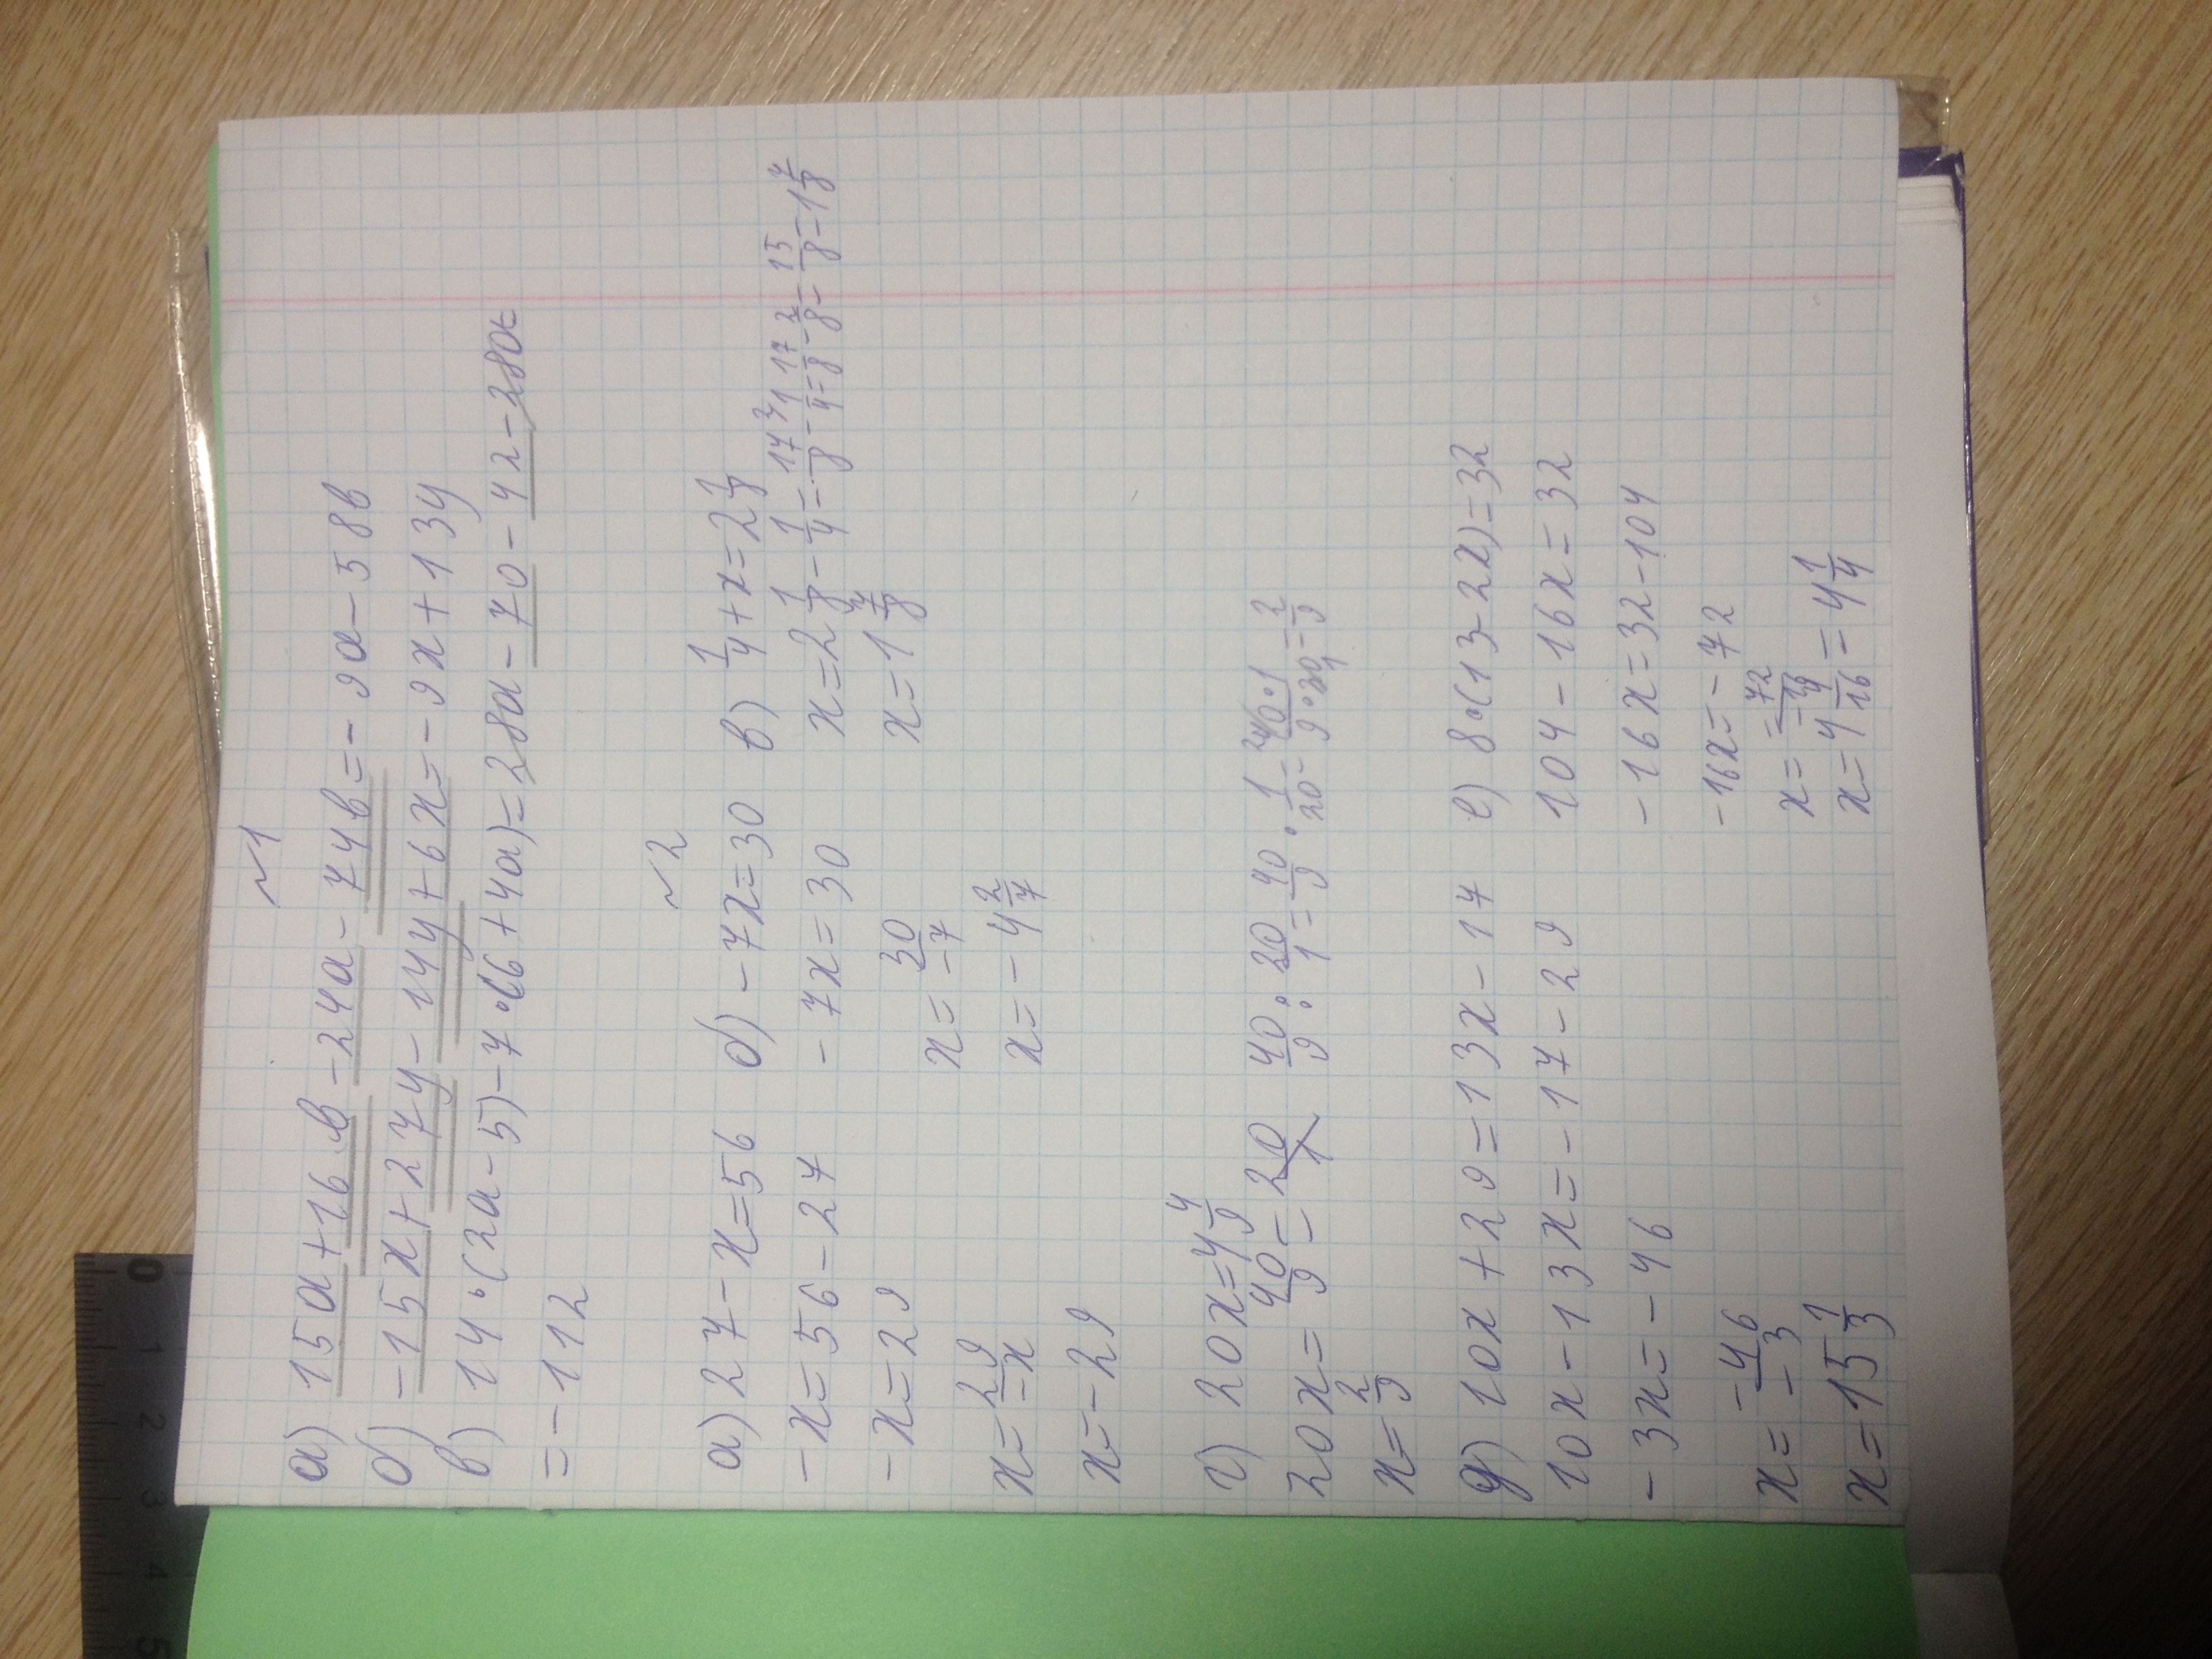 ~1
а) 15a+16в-24a-74в=-9a-58в
б) -15x+27y-14y+6x=-9x+13y
в) 14·(2a-5)-7·(6+4a)=28a-70-42-28a
=-112
~2
а) 27-x=56
-x=56-27
-x=29
x=29/-x
x=-29
б) -7x=30
-7x=30
x=30/-7
x=-4 2/7
в) 1/4+x=2 1/8
x=2 1/8-1/4=17/8-1/4=17/8-2/8=15/8=1 7/8
x=1 7/8
г) 20x=4 4/9
20x=40/9
x=2/9
40/9:20/1=40/9·1/20=40·1/9·20=2/9
д) 10x+29=13x-17
10x-13x=-17-29
-3x=-46
x=-46/-3
x=15 1/3
е) 8·(13-2x)=32
104-16x=32
-16x=32-104
-16x=-72
x=-72/-16
x=4 4/16=4 1/4
0 1 2 3 4 5